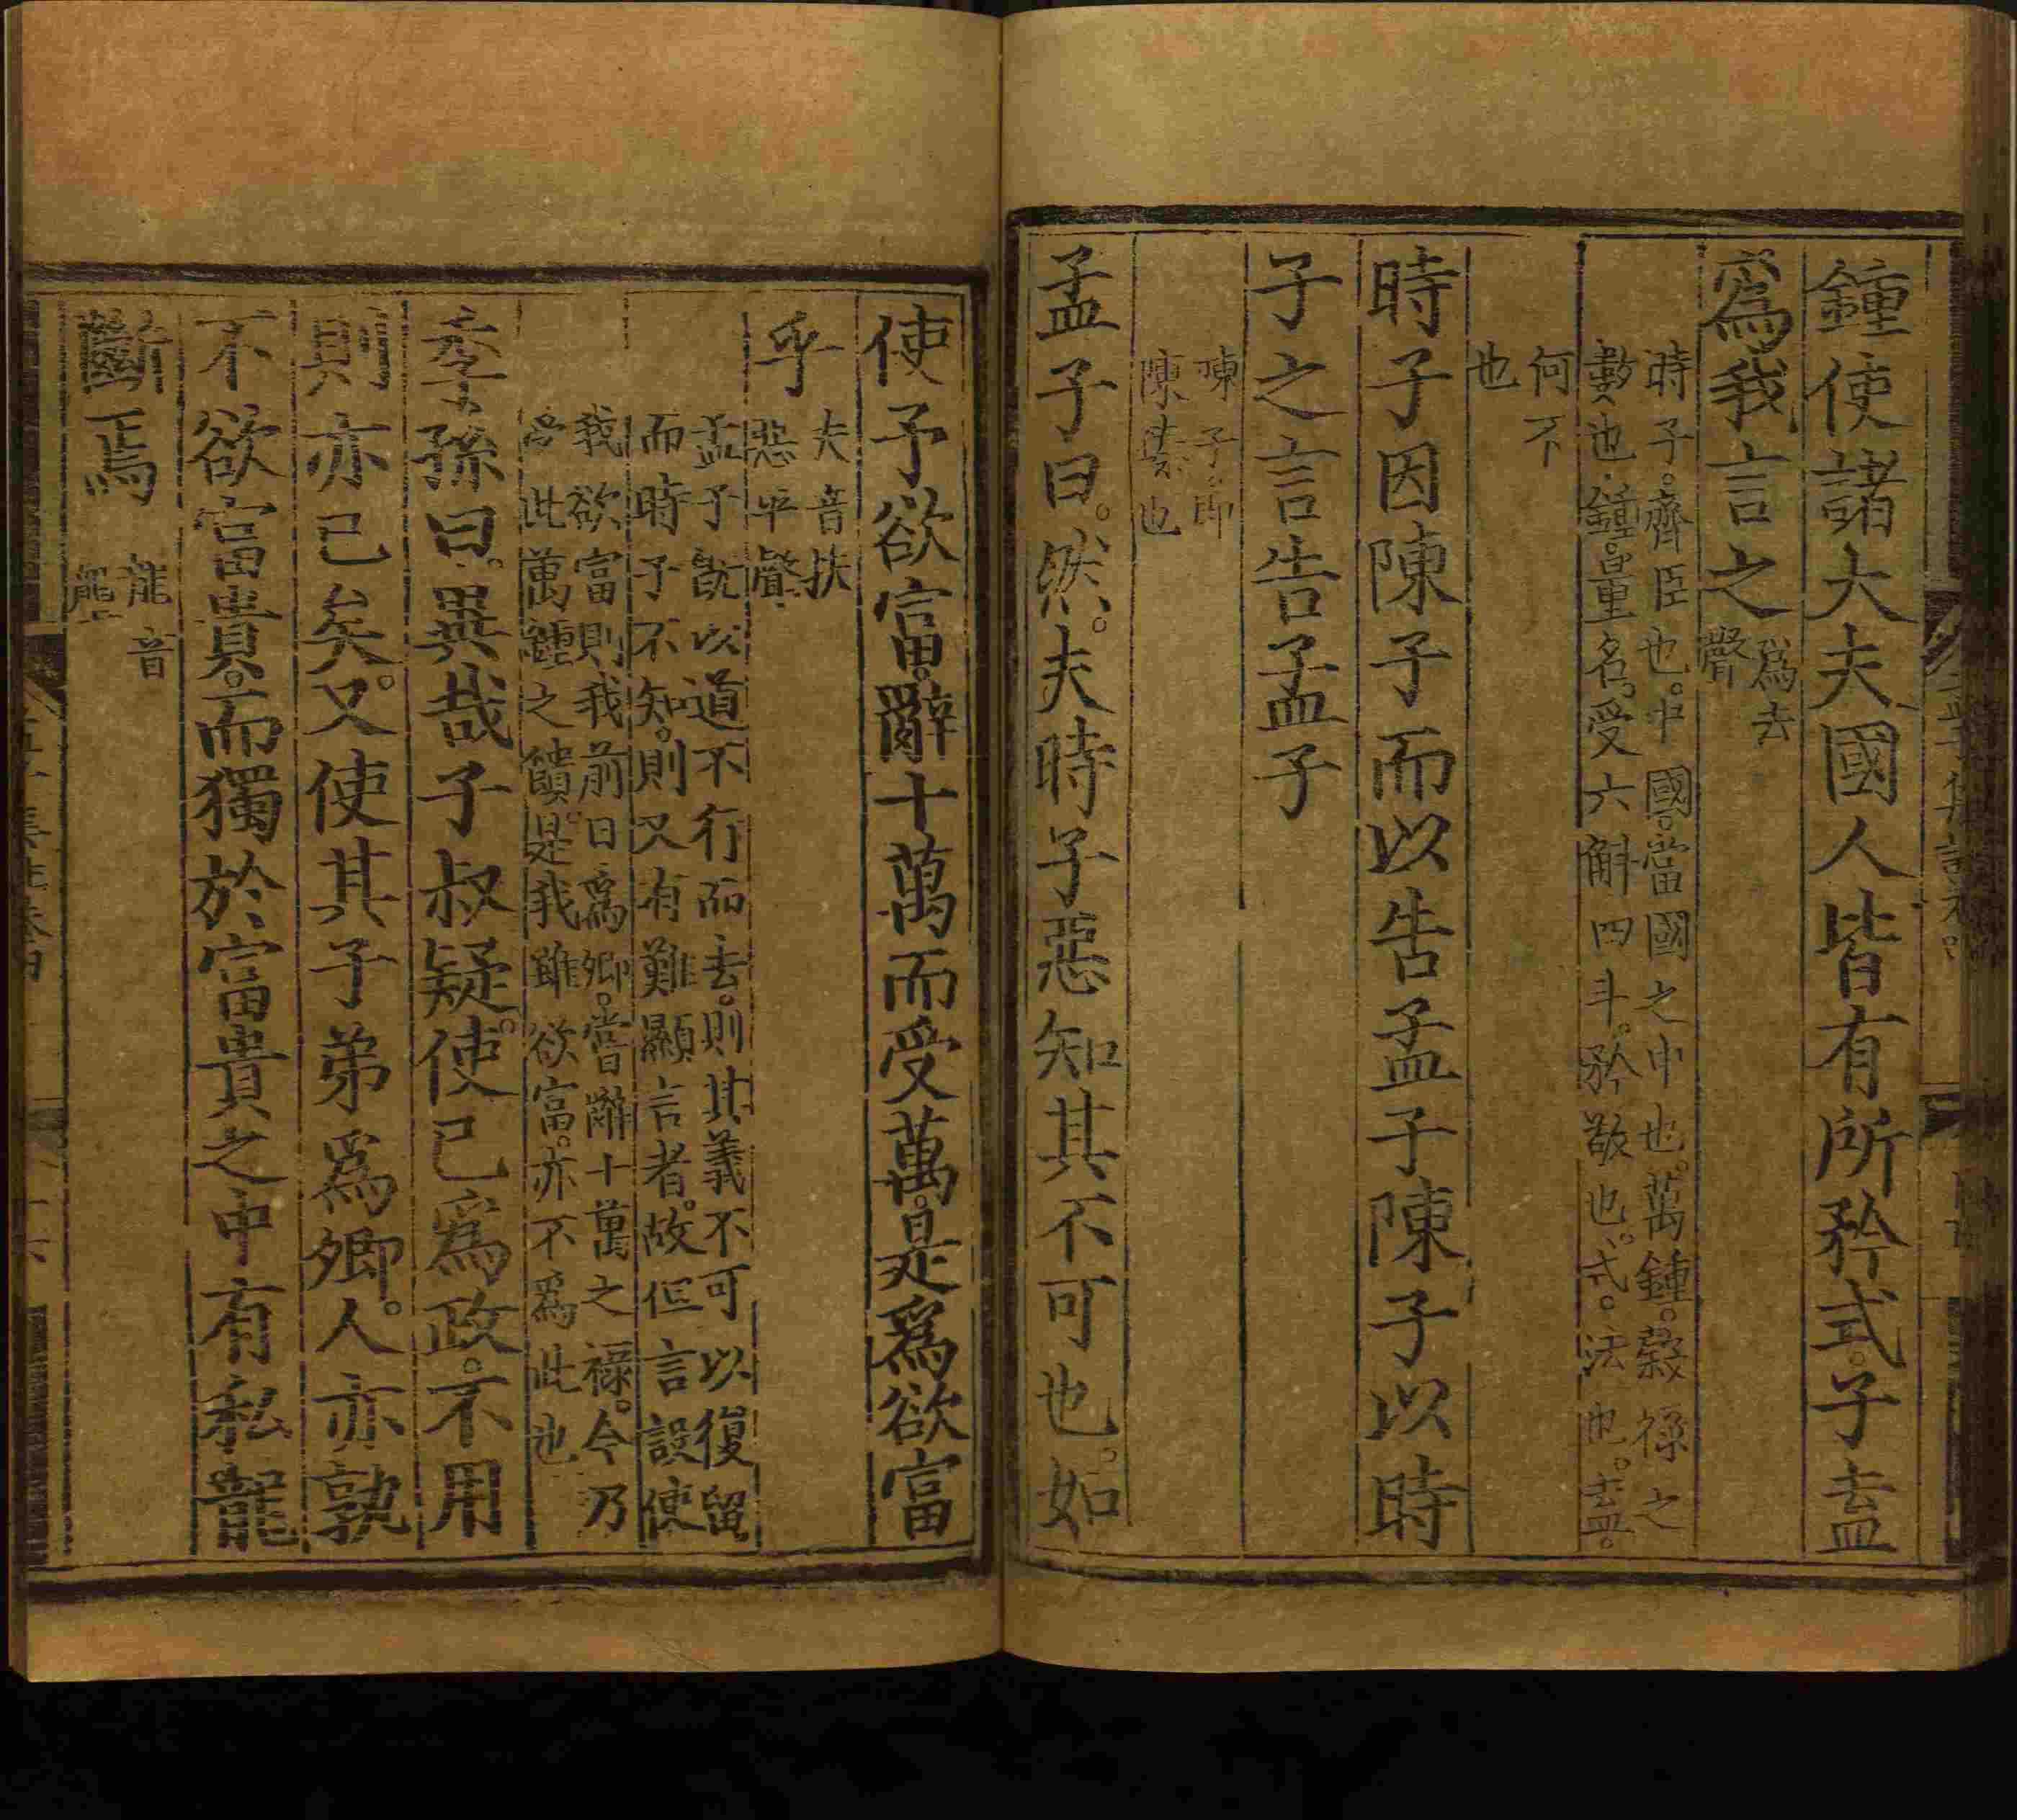 鍾使諸大夫國人皆有所矜式。子盍
爲我言之
爲去
聲
時子。齊臣也。中國。當國之中也。萬鍾。榖祿之
數也。鍾。量名。受六斛四斗。矜敬也。式。法也。盍。
何不
也
時子因陳子而以告孟子陳子以時
子之言告孟子
陳子即
陳臻也
孟子曰。然。夫時子惡知其不可也。如
使予欲富。辭十萬而受萬。是爲欲富
乎
夫音扶
惡平聲
孟子旣以道不行而去。則其義不可以復留
而時子不知。則又有難顯言者。故但言設使
我欲富則我前日爲卿。嘗辭十萬之祿。今乃
受此萬鍾之饋。是我雖欲富。亦不爲此也
季孫曰。異哉子叔疑。使己爲政。不用
則亦已矣。又使其子弟爲卿。人亦孰
不欲富貴。而獨於富貴之中有私龍
斷焉
龍音
壟